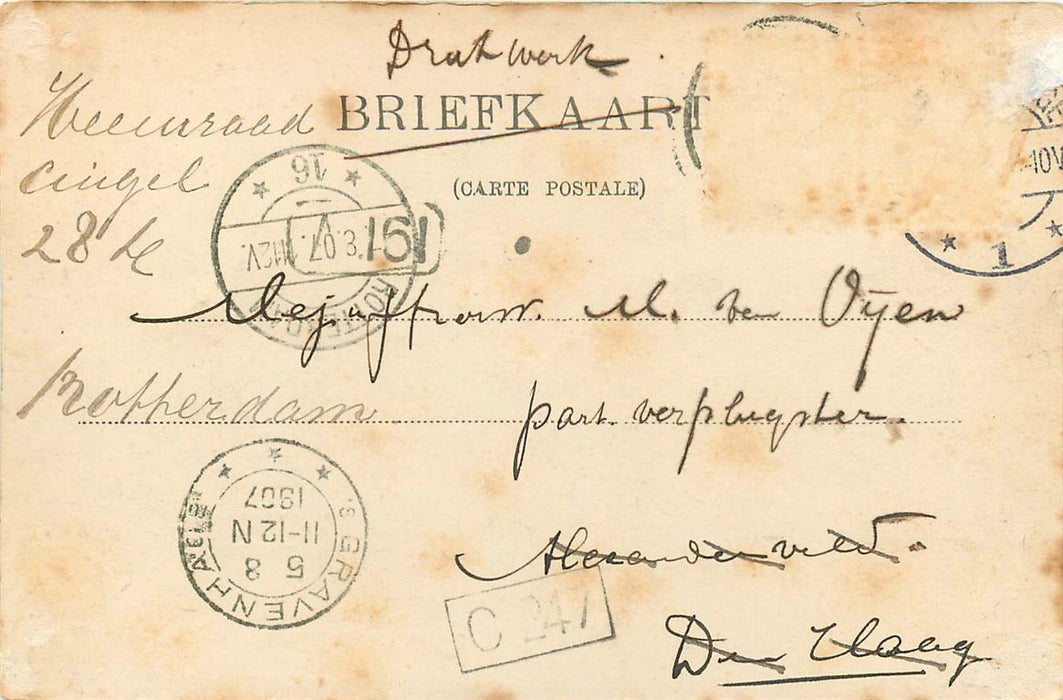 Drukwerk
BRIEFKAART
(CARTE POSTALE)
Heemraad
cingel
28
Rotterdam
Mejuffrouw. M. van Oijen
part. verpleegster.
Alexanderveld.
Den Haag
16
8.07. 1112V
ROTTERDAM
191
10V
1
'S GRAVENHAGE
5 8
11-12N
1907
C 247